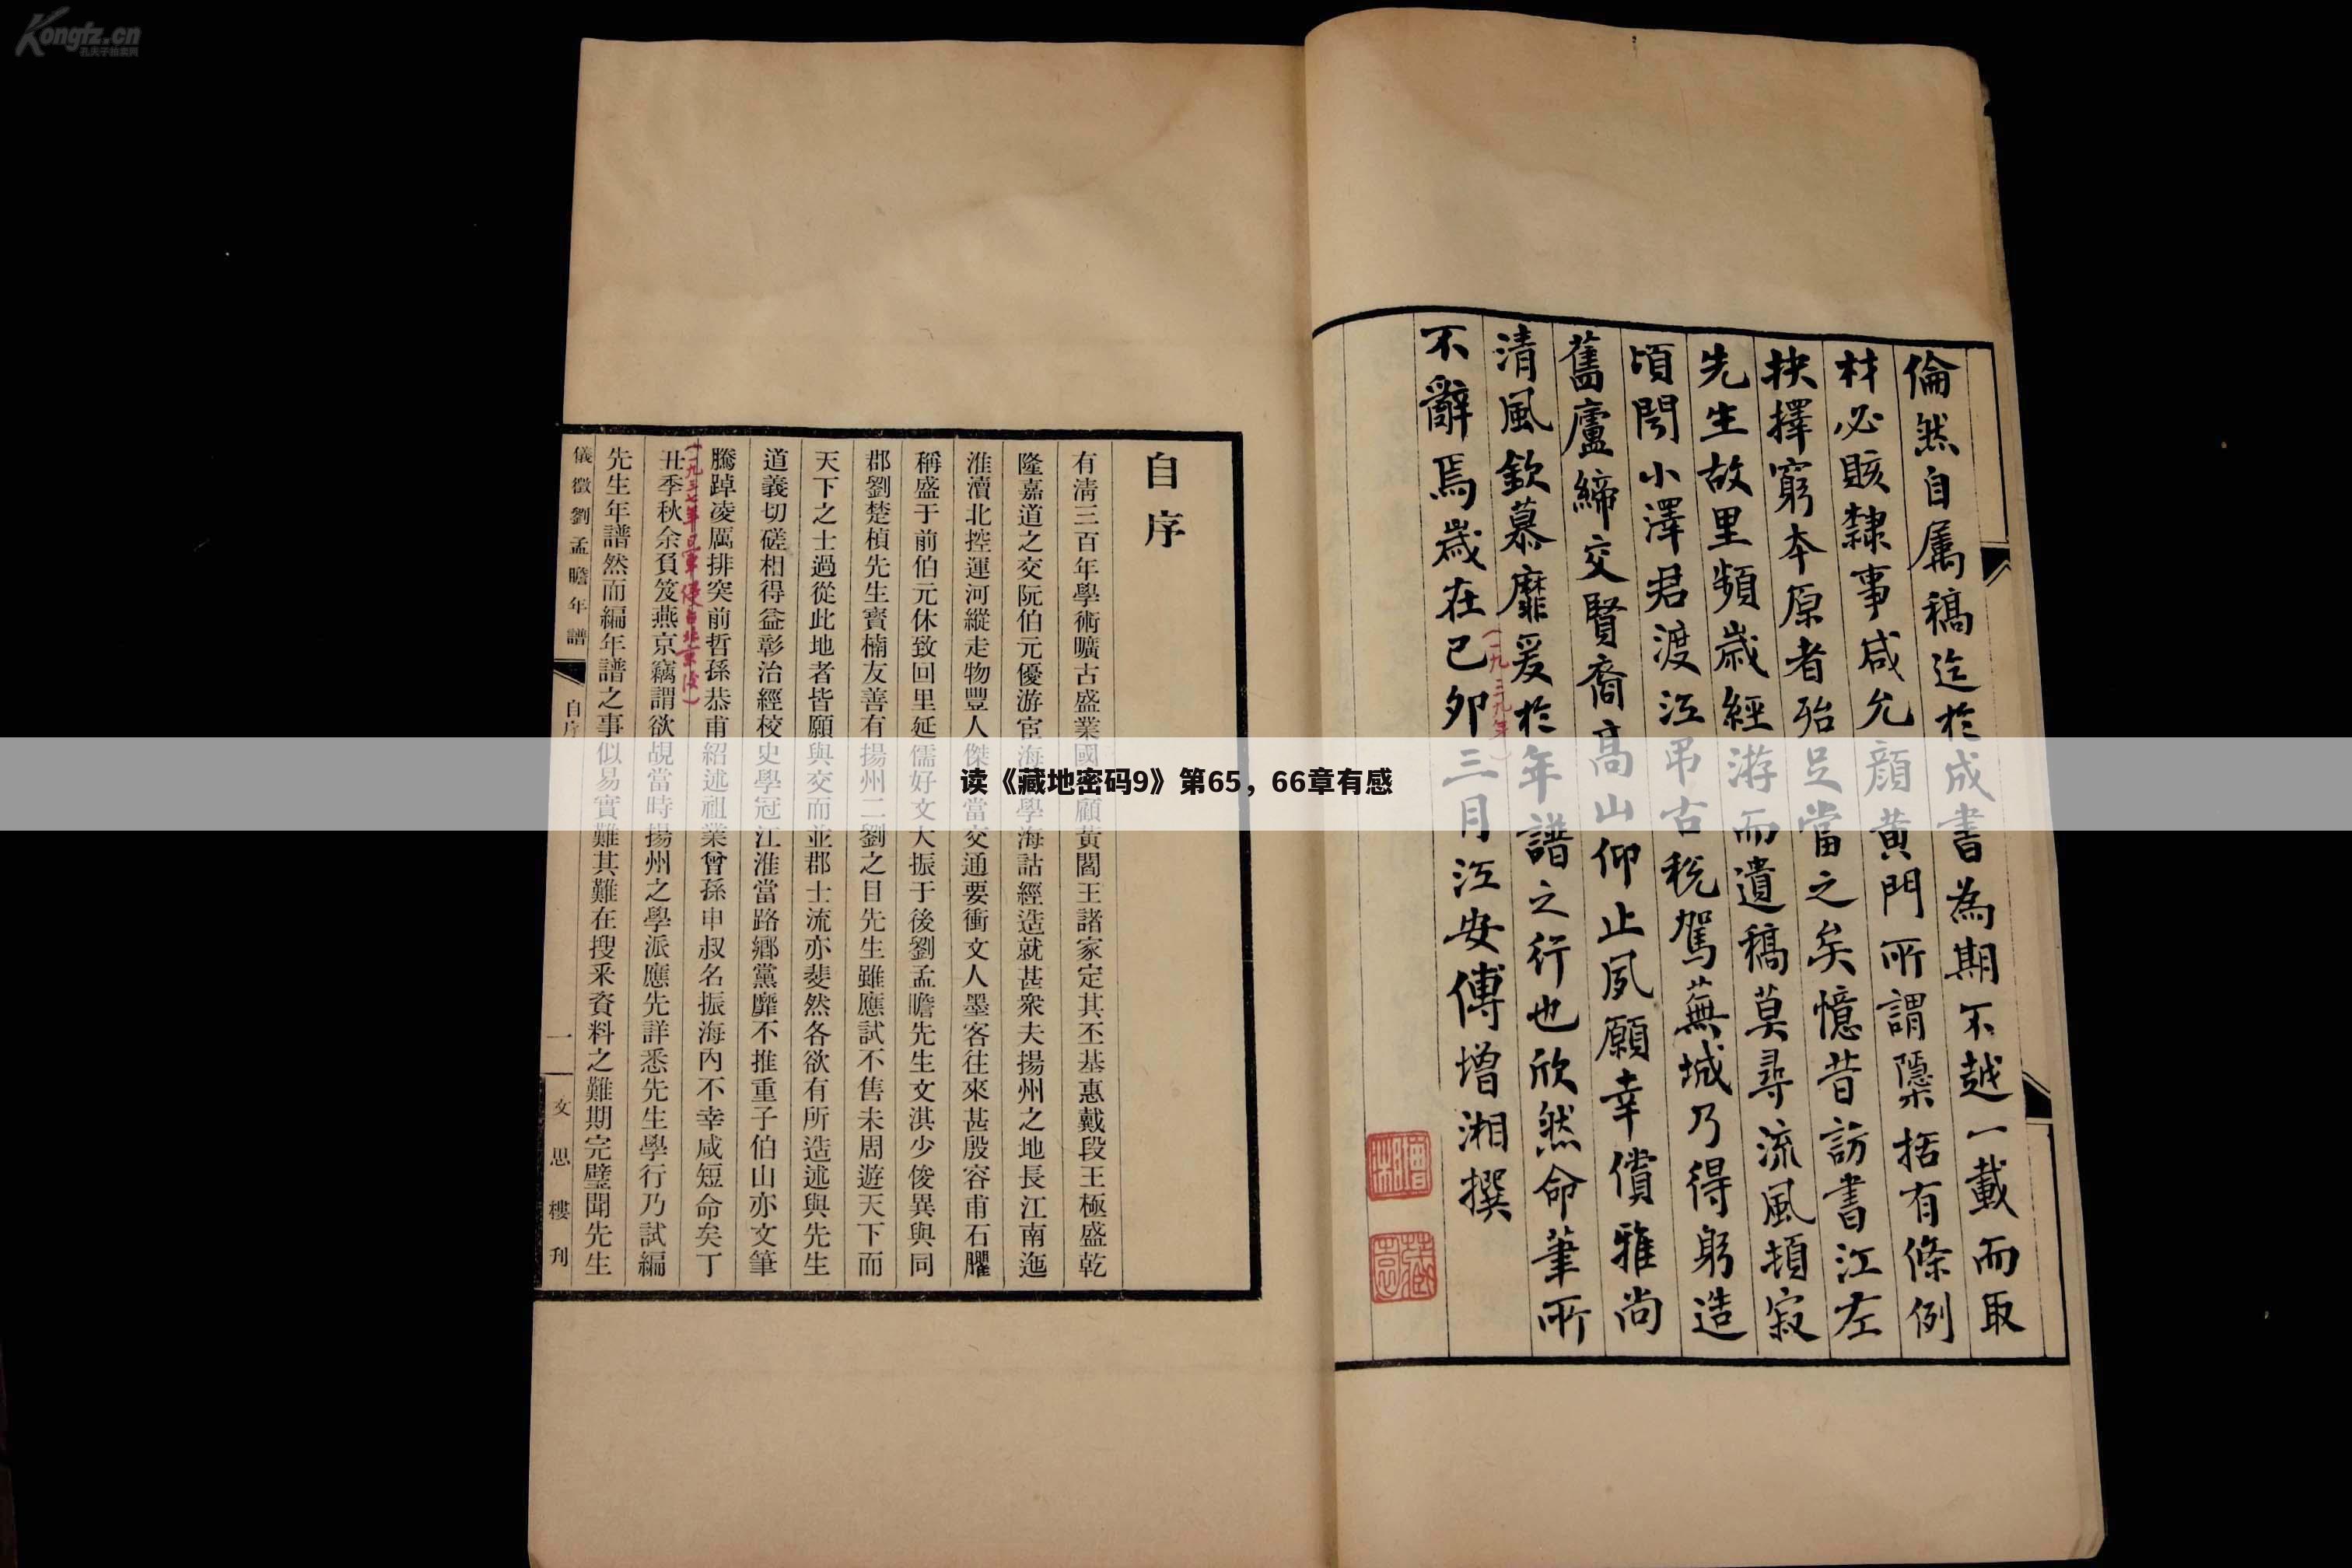 Kongfz.cn
孔夫子拍卖网
倫然自属稿迄於成書為期不越一載而取
材必賅隸事咸允顔黄門所謂隱栝有條例
抉擇窮本原者殆足當之矣憶昔訪書江左
先生故里頻歲經游而遺稿莫尋流風頓寂
頃閱小澤君渡江弔古税駕蕪城乃得躬造
舊廬締交賢裔高山仰止夙願幸償雅尚
清風欽慕靡爰於年譜之行也欣然命筆所
(一九三九年)
不辭焉歲在己夘三月江安傅增湘撰
自序
有清三百年學術曠古盛業國顧黃閻王諸家定其丕基惠戴段王極盛乾
隆嘉道之交阮伯元優游宦海學海詁經造就甚衆夫揚州之地長江南迤
淮瀆北控運河縱走物豐人傑當交通要衝文人墨客往來甚殷容甫石臞
稱盛于前伯元休致回里延儒好文大振于後劉孟瞻先生文淇少俊異與同
郡劉楚楨先生寶楠友善有揚州二劉之目先生雖應試不售未周遊天下而
天下之士過從此地者皆願與交而並郡士流亦斐然各欲有所造述與先生
道義切磋相得益彰治經校史學冠江淮當路鄉黨靡不推重子伯山亦文筆
騰踔凌厲排突前哲孫恭甫紹述祖業曾孫申叔名振海內不幸咸短命矣丁
(一九三七年日軍侵占北京後)
丑季秋余負笈燕京竊謂欲覘當時揚州之學派應先詳悉先生學行乃試編
先生年譜然而編年譜之事似易實難其難在搜采資料之難期完璧聞先生
儀徵劉孟瞻年譜
自序
一
文思樓刊
读《藏地密码9》第65，66章有感